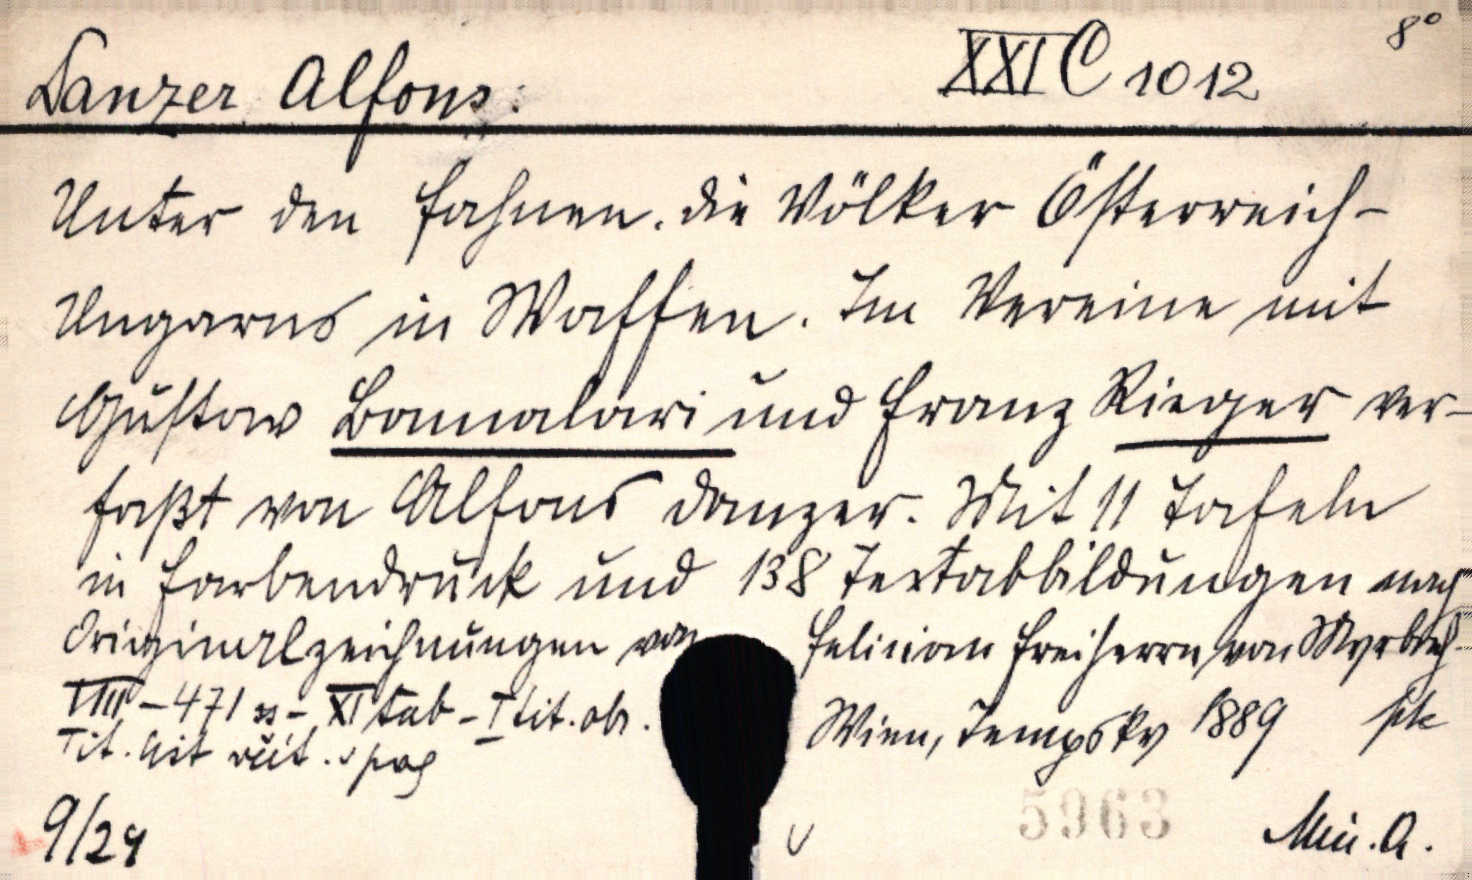 Danzer Alfons: XXI C 1012 8°
Unter den Fahnen. Die Völker Österreich-
Ungarns in Waffen. Im Vereine mit
Gustav Bancalari und Franz Rieger ver-
faßt von Alfons Danzer. Mit 11 Tafeln
in Farbendruck und 138 Textabbildungen nach
Originalzeichnungen von Felician Freiherrn von Myrbach.
VIII – 471 ss – XI tab – I tit. obr. Wien, Tempsky 1889
Tit. list včít. v pag
5963
9/24 Min. A.